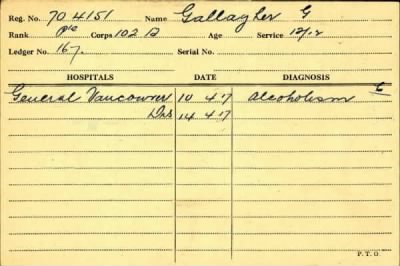 Reg. No. 704151 Name Gallagher G
Rank Pte Corps 102 B Age Service 12/12
Ledger No. 167. Serial No.
HOSPITALS DATE DIAGNOSIS
General Vancouver 10 4 17 Alcoholism
Dis 14 4 17
P. T. O.